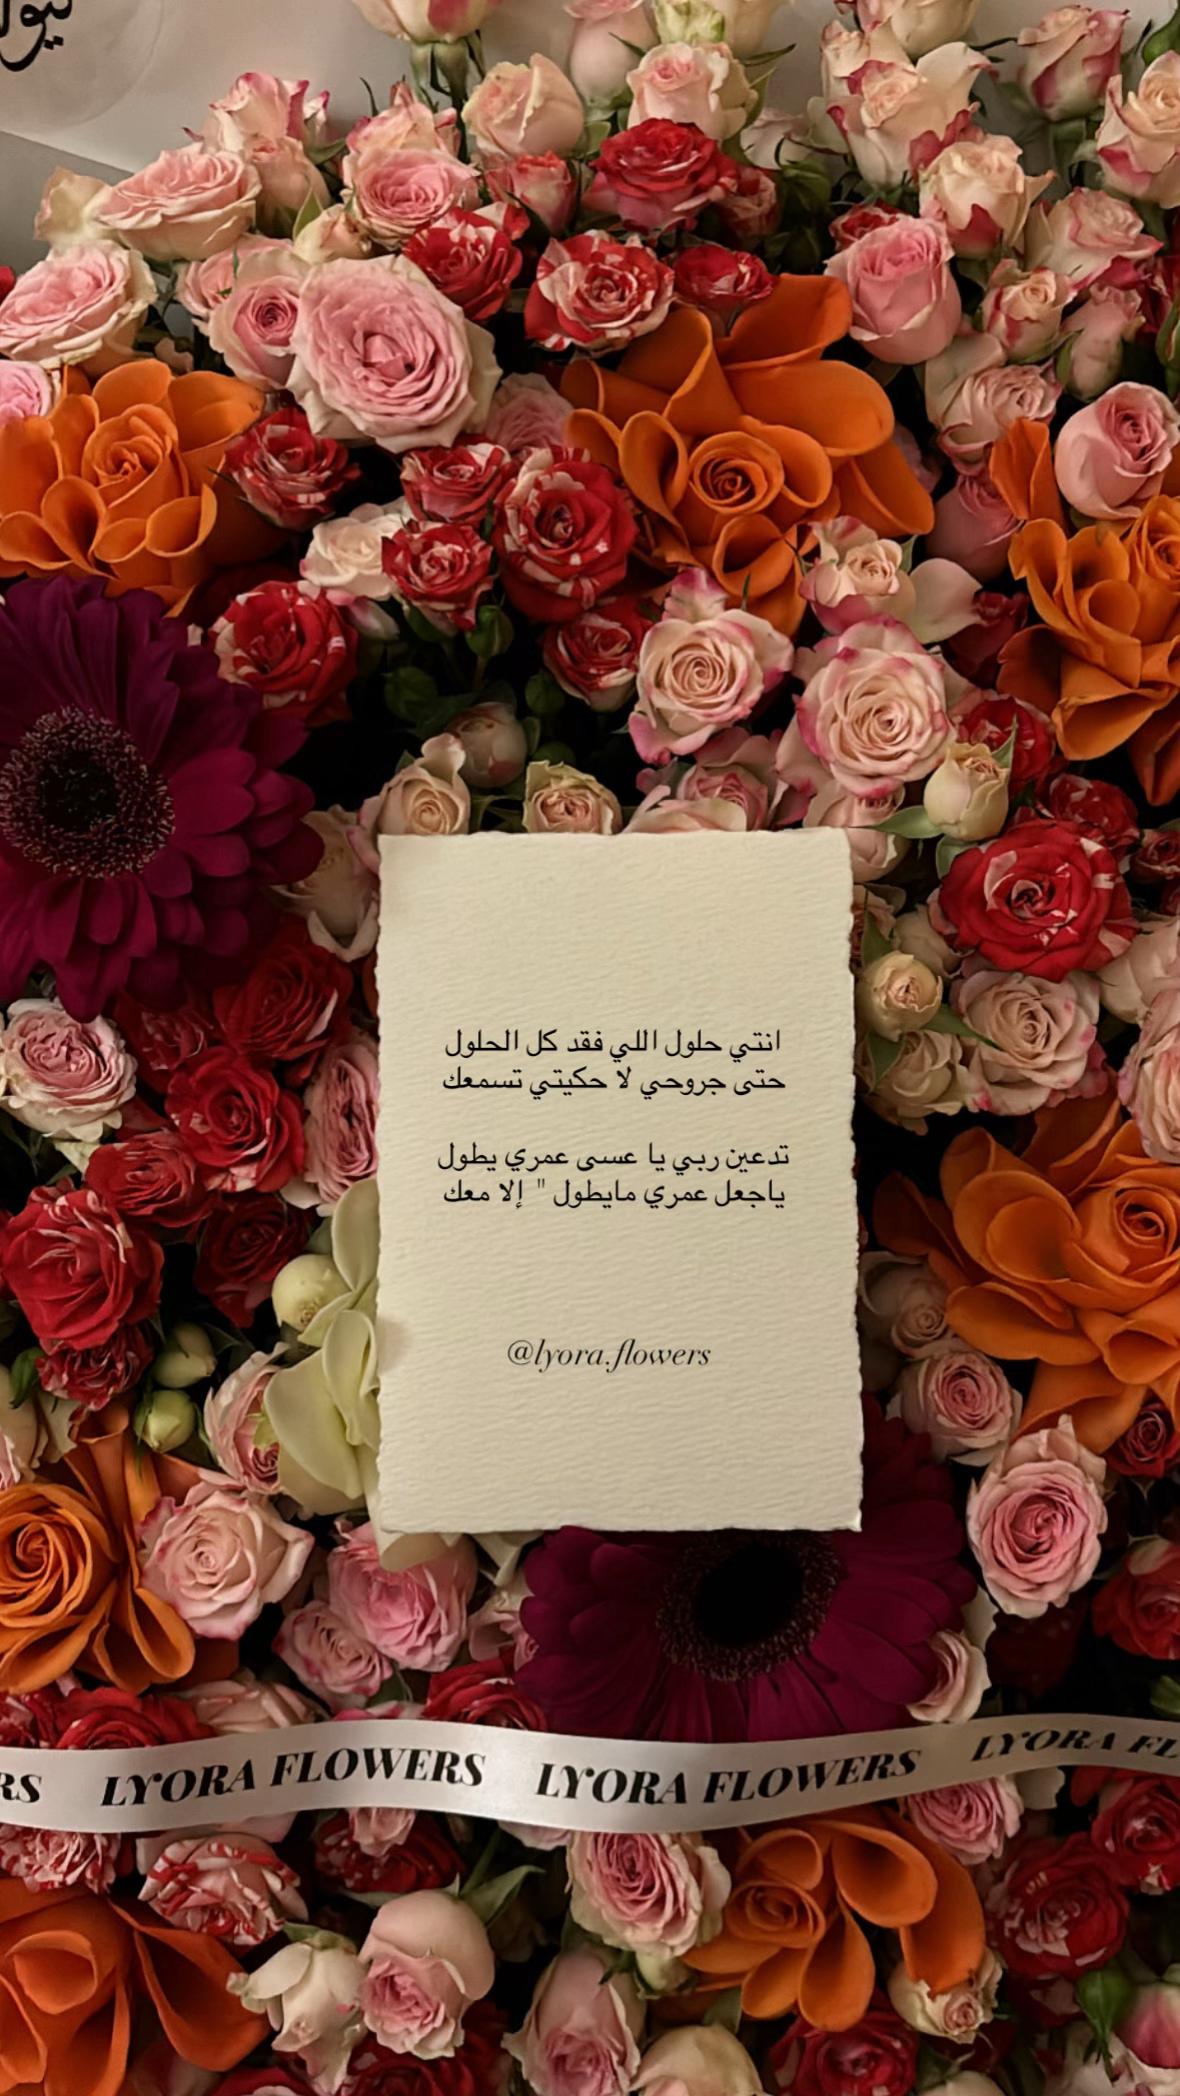 انتي حلول اللي فقد كل الحلول
حتى جروحي لا حكيتي تسمعك
تدعين ربي يا عسى عمري يطول
ياجعل عمري مايطول " إلا معك
@lyora.flowers
RS LYORA FLOWERS LYORA FLOWERS LYORA FL